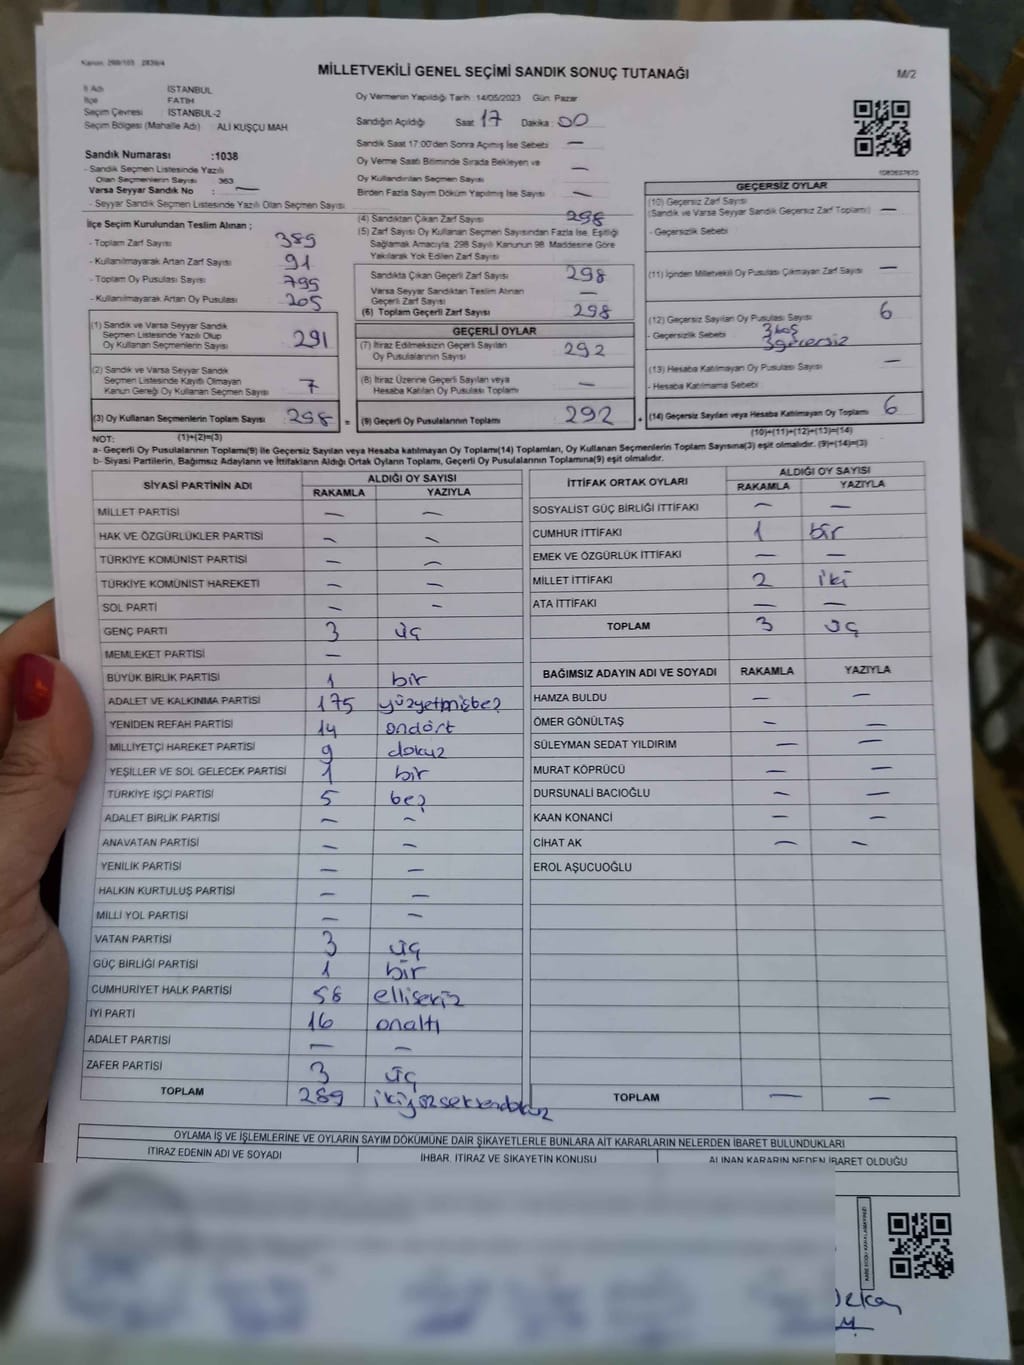 Kanun: 298/105 2839/4
MİLLETVEKİLİ GENEL SEÇİMİ SANDIK SONUÇ TUTANAĞI
M/2
İl Adı İSTANBUL
İlçe FATİH
Seçim Çevresi : İSTANBUL-2
Seçim Bölgesi (Mahalle Adı) ALİ KUŞÇU MAH
Sandık Numarası :1038
- Sandık Seçmen Listesinde Yazılı
Olan Seçmenlerin Sayısı 363
Varsa Seyyar Sandık No : —
- Seyyar Sandık Seçmen Listesinde Yazılı Olan Seçmen Sayısı
Oy Vermenin Yapıldığı Tarih : 14/05/2023 Gün: Pazar
Sandığın Açıldığı Saat : 17 Dakika : 00
Sandık Saat 17:00'den Sonra Açımış İse Sebebi —
Oy Verme Saati Bitiminde Sırada Bekleyen ve
Oy Kullandırılan Seçmen Sayısı —
Birden Fazla Sayım Döküm Yapılmış İse Sayısı —
İlçe Seçim Kurulundan Teslim Alınan ;
- Toplam Zarf Sayısı 389
- Kullanılmayarak Artan Zarf Sayısı 91
- Toplam Oy Pusulası 795
- Kullanılmayarak Artan Oy Pusulası 205
(1) Sandık ve Varsa Seyyar Sandık
Seçmen Listesinde Yazılı Olup
Oy Kullanan Seçmenlerin Sayısı 291
(2) Sandık ve Varsa Seyyar Sandık
Seçmen Listesinde Kayıtlı Olmayan
Kanun Gereği Oy Kullanan Seçmen Sayısı 7
(3) Oy Kullanan Seçmenlerin Toplam Sayısı 298 =
(1)+(2)=(3)
(4) Sandıktan Çıkan Zarf Sayısı 298
(5) Zarf Sayısı Oy Kullanan Seçmen Sayısından Fazla İse, Eşitliği
Sağlamak Amacıyla, 298 Sayılı Kanunun 98. Maddesine Göre
Yakılarak Yok Edilen Zarf Sayısı
Sandıkta Çıkan Geçerli Zarf Sayısı 298
Varsa Seyyar Sandıktan Teslim Alınan
Geçerli Zarf Sayısı —
(6) Toplam Geçerli Zarf Sayısı 298
GEÇERLİ OYLAR
(7) İtiraz Edilmeksizin Geçerli Sayılan
Oy Pusulalarının Sayısı 292
(8) İtiraz Üzerine Geçerli Sayılan veya
Hesaba Katılan Oy Pusulası Toplamı —
(9) Geçerli Oy Pusulalarının Toplamı 292 +
GEÇERSİZ OYLAR
(10) Geçersiz Zarf Sayısı
(Sandık ve Varsa Seyyar Sandık Geçersiz Zarf Toplamı) —
- Geçersizlik Sebebi
(11) İçinden Milletvekili Oy Pusulası Çıkmayan Zarf Sayısı —
(12) Geçersiz Sayılan Oy Pusulası Sayısı 6
- Geçersizlik Sebebi 3 boş
3 geçersiz
(13) Hesaba Katılmayan Oy Pusulası Sayısı —
- Hesaba Katılmama Sebebi
(14) Geçersiz Sayılan veya Hesaba Katılmayan Oy Toplamı 6
(10)+(11)+(12)+(13)=(14)
NOT:
a- Geçerli Oy Pusulalarının Toplamı(9) ile Geçersiz Sayılan veya Hesaba katılmayan Oy Toplam(14) Toplamları, Oy Kullanan Seçmenlerin Toplam Sayısına(3) eşit olmalıdır. (9)+(14)=(3)
b- Siyasi Partilerin, Bağımsız Adayların ve İttifakların Aldığı Ortak Oyların Toplamı, Geçerli Oy Pusulalarının Toplamına(9) eşit olmalıdır.
SİYASİ PARTİNİN ADI ALDIĞI OY SAYISI
RAKAMLA YAZIYLA
MİLLET PARTİSİ — —
HAK VE ÖZGÜRLÜKLER PARTİSİ — —
TÜRKİYE KOMÜNİST PARTİSİ — —
TÜRKİYE KOMÜNİST HAREKETİ — —
SOL PARTİ — —
GENÇ PARTİ 3 üç
MEMLEKET PARTİSİ —
BÜYÜK BİRLİK PARTİSİ 1 bir
ADALET VE KALKINMA PARTİSİ 175 yüzyetmişbeş
YENİDEN REFAH PARTİSİ 14 ondört
MİLLİYETÇİ HAREKET PARTİSİ 9 dokuz
YEŞİLLER VE SOL GELECEK PARTİSİ 1 bir
TÜRKİYE İŞÇİ PARTİSİ 5 beş
ADALET BİRLİK PARTİSİ — —
ANAVATAN PARTİSİ — —
YENİLİK PARTİSİ — —
HALKIN KURTULUŞ PARTİSİ — —
MİLLİ YOL PARTİSİ — —
VATAN PARTİSİ 3 üç
GÜÇ BİRLİĞİ PARTİSİ 1 bir
CUMHURİYET HALK PARTİSİ 58 ellisekiz
İYİ PARTİ 16 onaltı
ADALET PARTİSİ — —
ZAFER PARTİSİ 3 üç
TOPLAM 289 ikiyüzseksendokuz
İTTİFAK ORTAK OYLARI ALDIĞI OY SAYISI
RAKAMLA YAZIYLA
SOSYALİST GÜÇ BİRLİĞİ İTTİFAKI — —
CUMHUR İTTİFAKI 1 bir
EMEK VE ÖZGÜRLÜK İTTİFAKI — —
MİLLET İTTİFAKI 2 iki
ATA İTTİFAKI — —
TOPLAM 3 üç
BAĞIMSIZ ADAYIN ADI VE SOYADI RAKAMLA YAZIYLA
HAMZA BULDU — —
ÖMER GÖNÜLTAŞ — —
SÜLEYMAN SEDAT YILDIRIM — —
MURAT KÖPRÜCÜ — —
DURSUNALİ BACIOĞLU — —
KAAN KONANCİ — —
CİHAT AK — —
EROL AŞUCUOĞLU
TOPLAM — —
OYLAMA İŞ VE İŞLEMLERİNE VE OYLARIN SAYIM DÖKÜMÜNE DAİR ŞİKAYETLERLE BUNLARA AİT KARARLARIN NELERDEN İBARET BULUNDUKLARI
İTİRAZ EDENİN ADI VE SOYADI İHBAR, İTİRAZ VE ŞİKAYETİN KONUSU ALINAN KARARIN NEDEN İBARET OLDUĞU